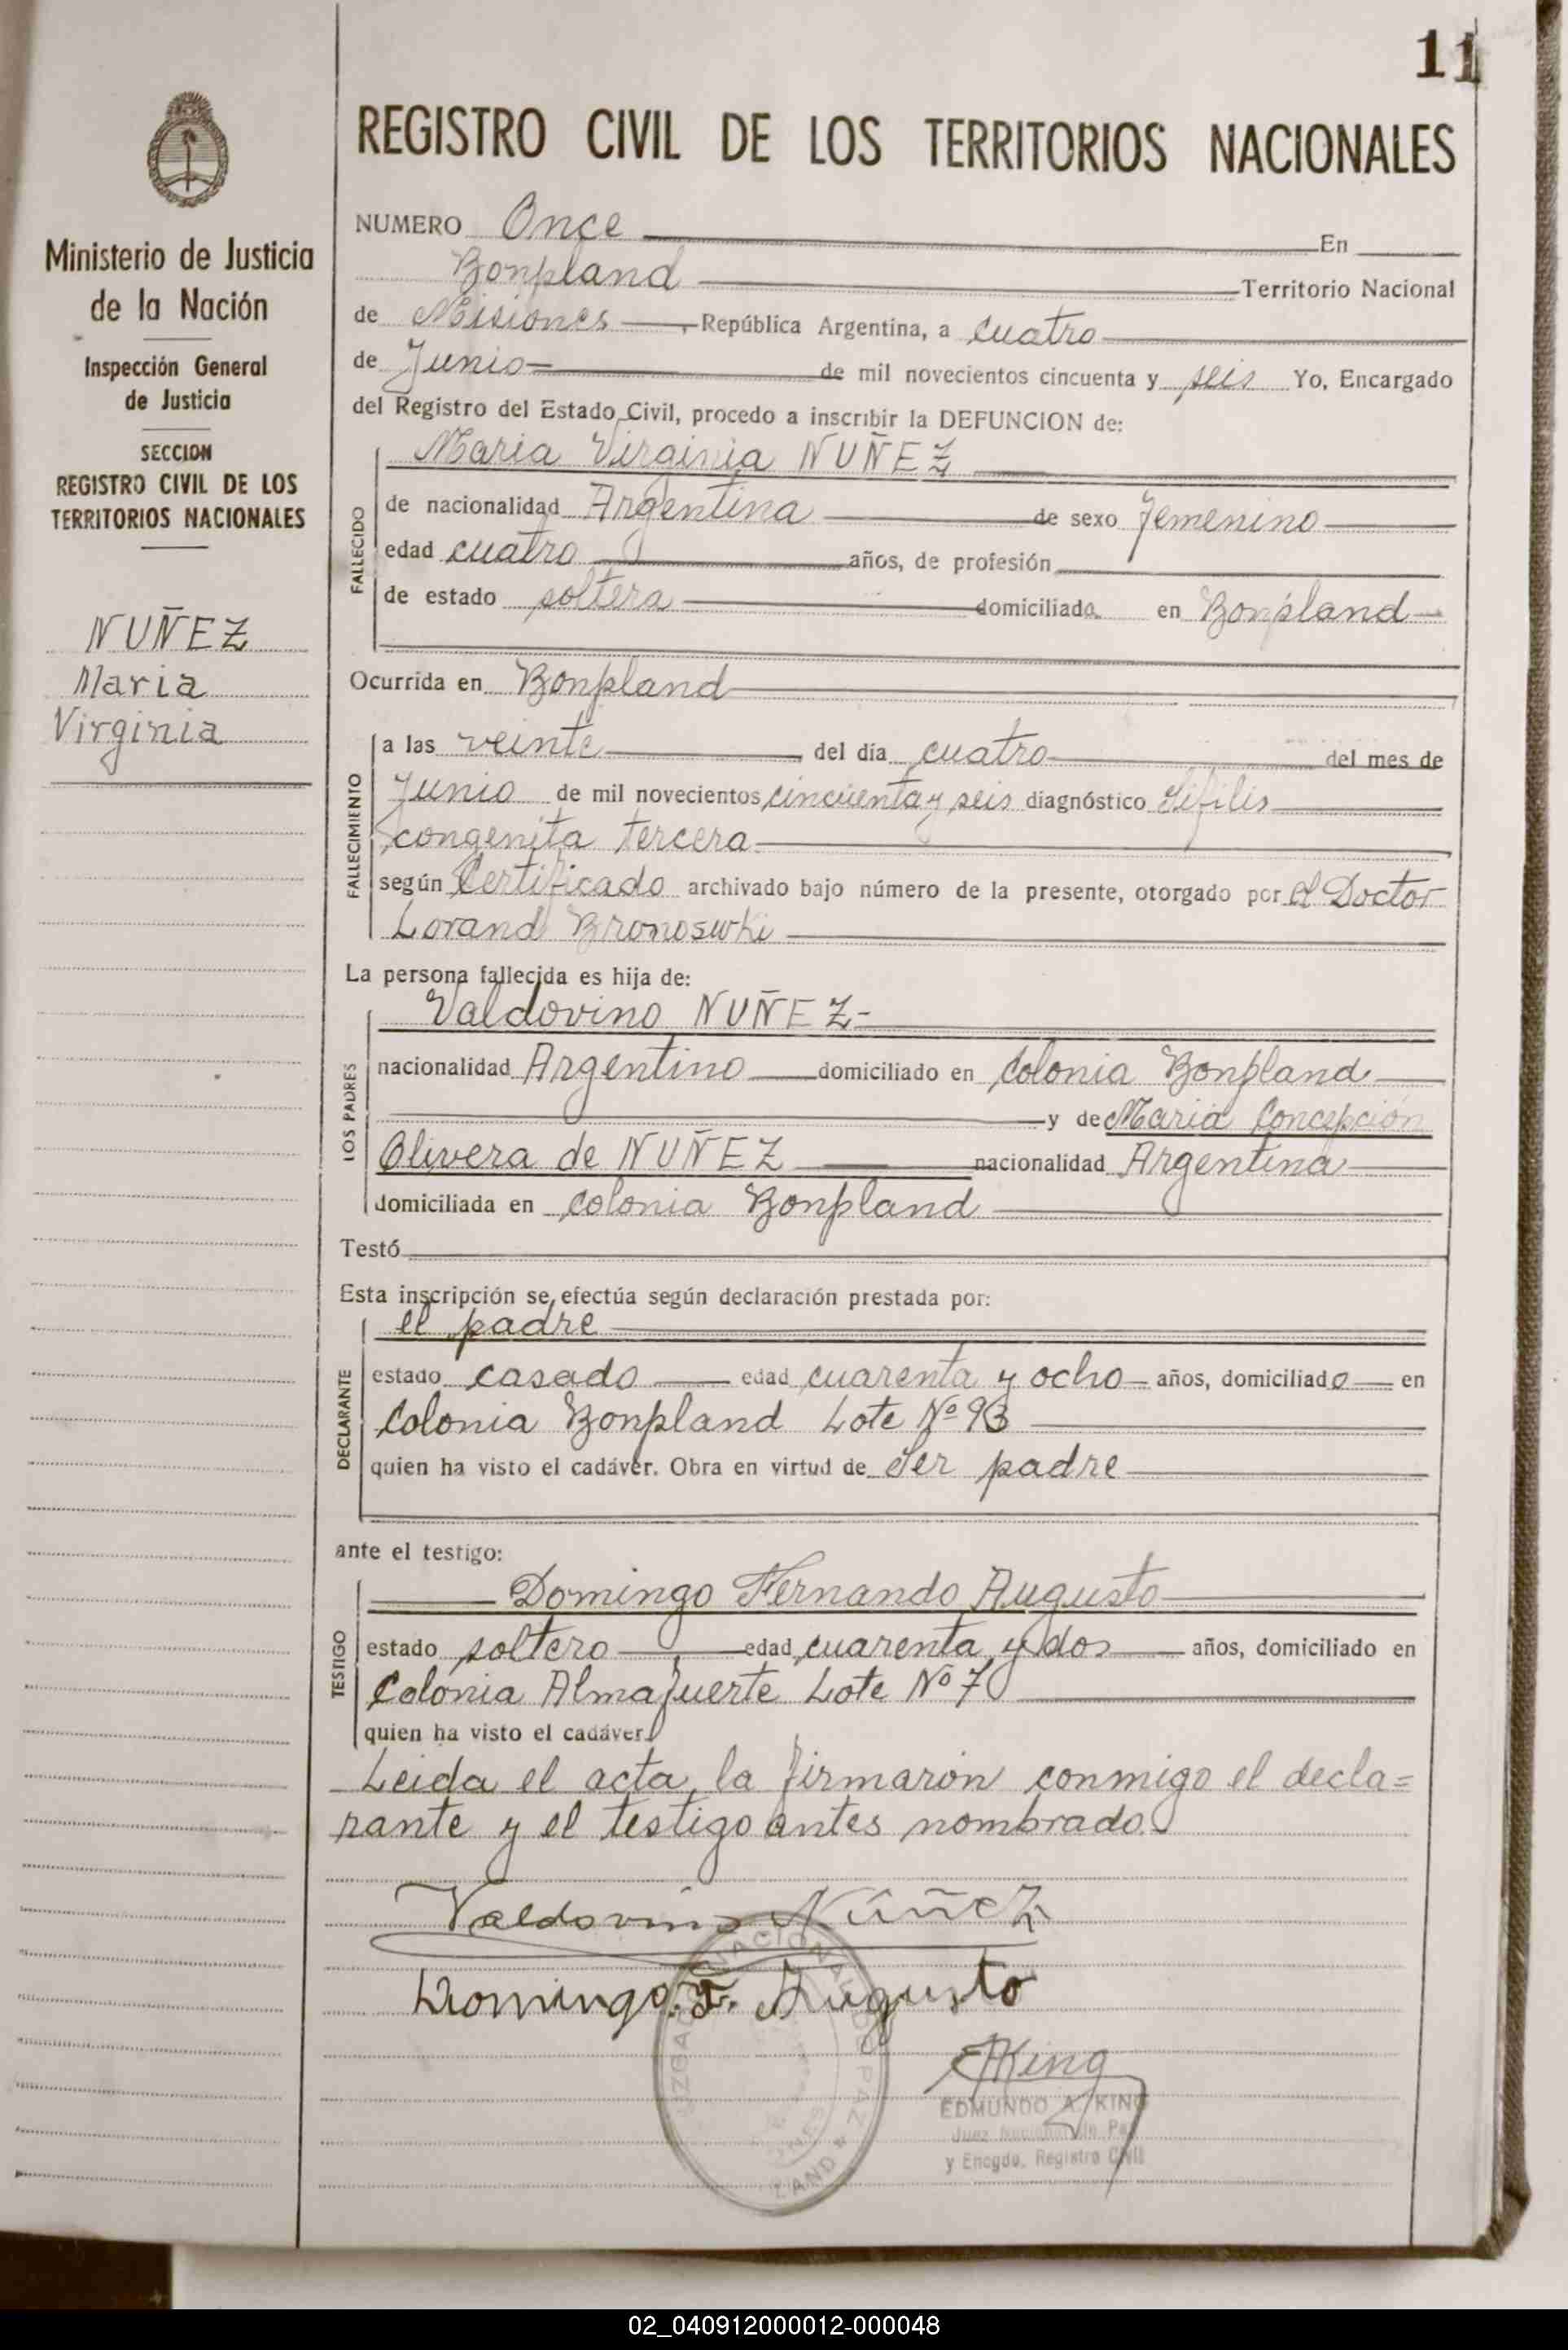 11
REGISTRO CIVIL DE LOS TERRITORIOS NACIONALES
Ministerio de Justicia
de la Nación
Inspección General
de Justicia
SECCION
REGISTRO CIVIL DE LOS
TERRITORIOS NACIONALES
NUÑEZ
Maria
Virginia
NUMERO Once En
Bonpland Territorio Nacional
de Misiones, República Argentina, a cuatro
de Junio de mil novecientos cincuenta y seis Yo, Encargado
del Registro del Estado Civil, procedo a inscribir la DEFUNCION de:
FALLECIDO
Maria Virginia NUÑEZ
de nacionalidad Argentina de sexo femenino
edad cuatro años, de profesión
de estado soltera domiciliada en Bonpland
Ocurrida en Bonpland
FALLECIMIENTO
a las veinte del día cuatro del mes de
Junio de mil novecientos cincuenta y seis diagnóstico Sifilis
congenita tercera
según Certificado archivado bajo número de la presente, otorgado por el Doctor
Lorand Bronoswki
La persona fallecida es hija de:
LOS PADRES
Valdovino NUÑEZ-
nacionalidad Argentino domiciliado en Colonia Bonpland
y de Maria Concepción
Olivera de NUÑEZ nacionalidad Argentina
domiciliada en colonia Bonpland
Testó
Esta inscripción se efectúa según declaración prestada por:
DECLARANTE
el padre
estado casado edad cuarenta y ocho años, domiciliado en
Colonia Bonpland Lote Nº 93
quien ha visto el cadáver. Obra en virtud de Ser padre
ante el testigo:
TESTIGO
Domingo Fernando Augusto
estado soltero edad cuarenta y dos años, domiciliado en
Colonia Almafuerte Lote Nº 7
quien ha visto el cadáver.
Leida el acta, la firmarón conmigo el decla=
rante y el testigo antes nombrado.
Valdovino Núñez
Domingo. F. Augusto
King
EDMUNDO A. KING
Juez Nacional de Paz
y Encgdo. Registro Civil
02_040912000012-000048